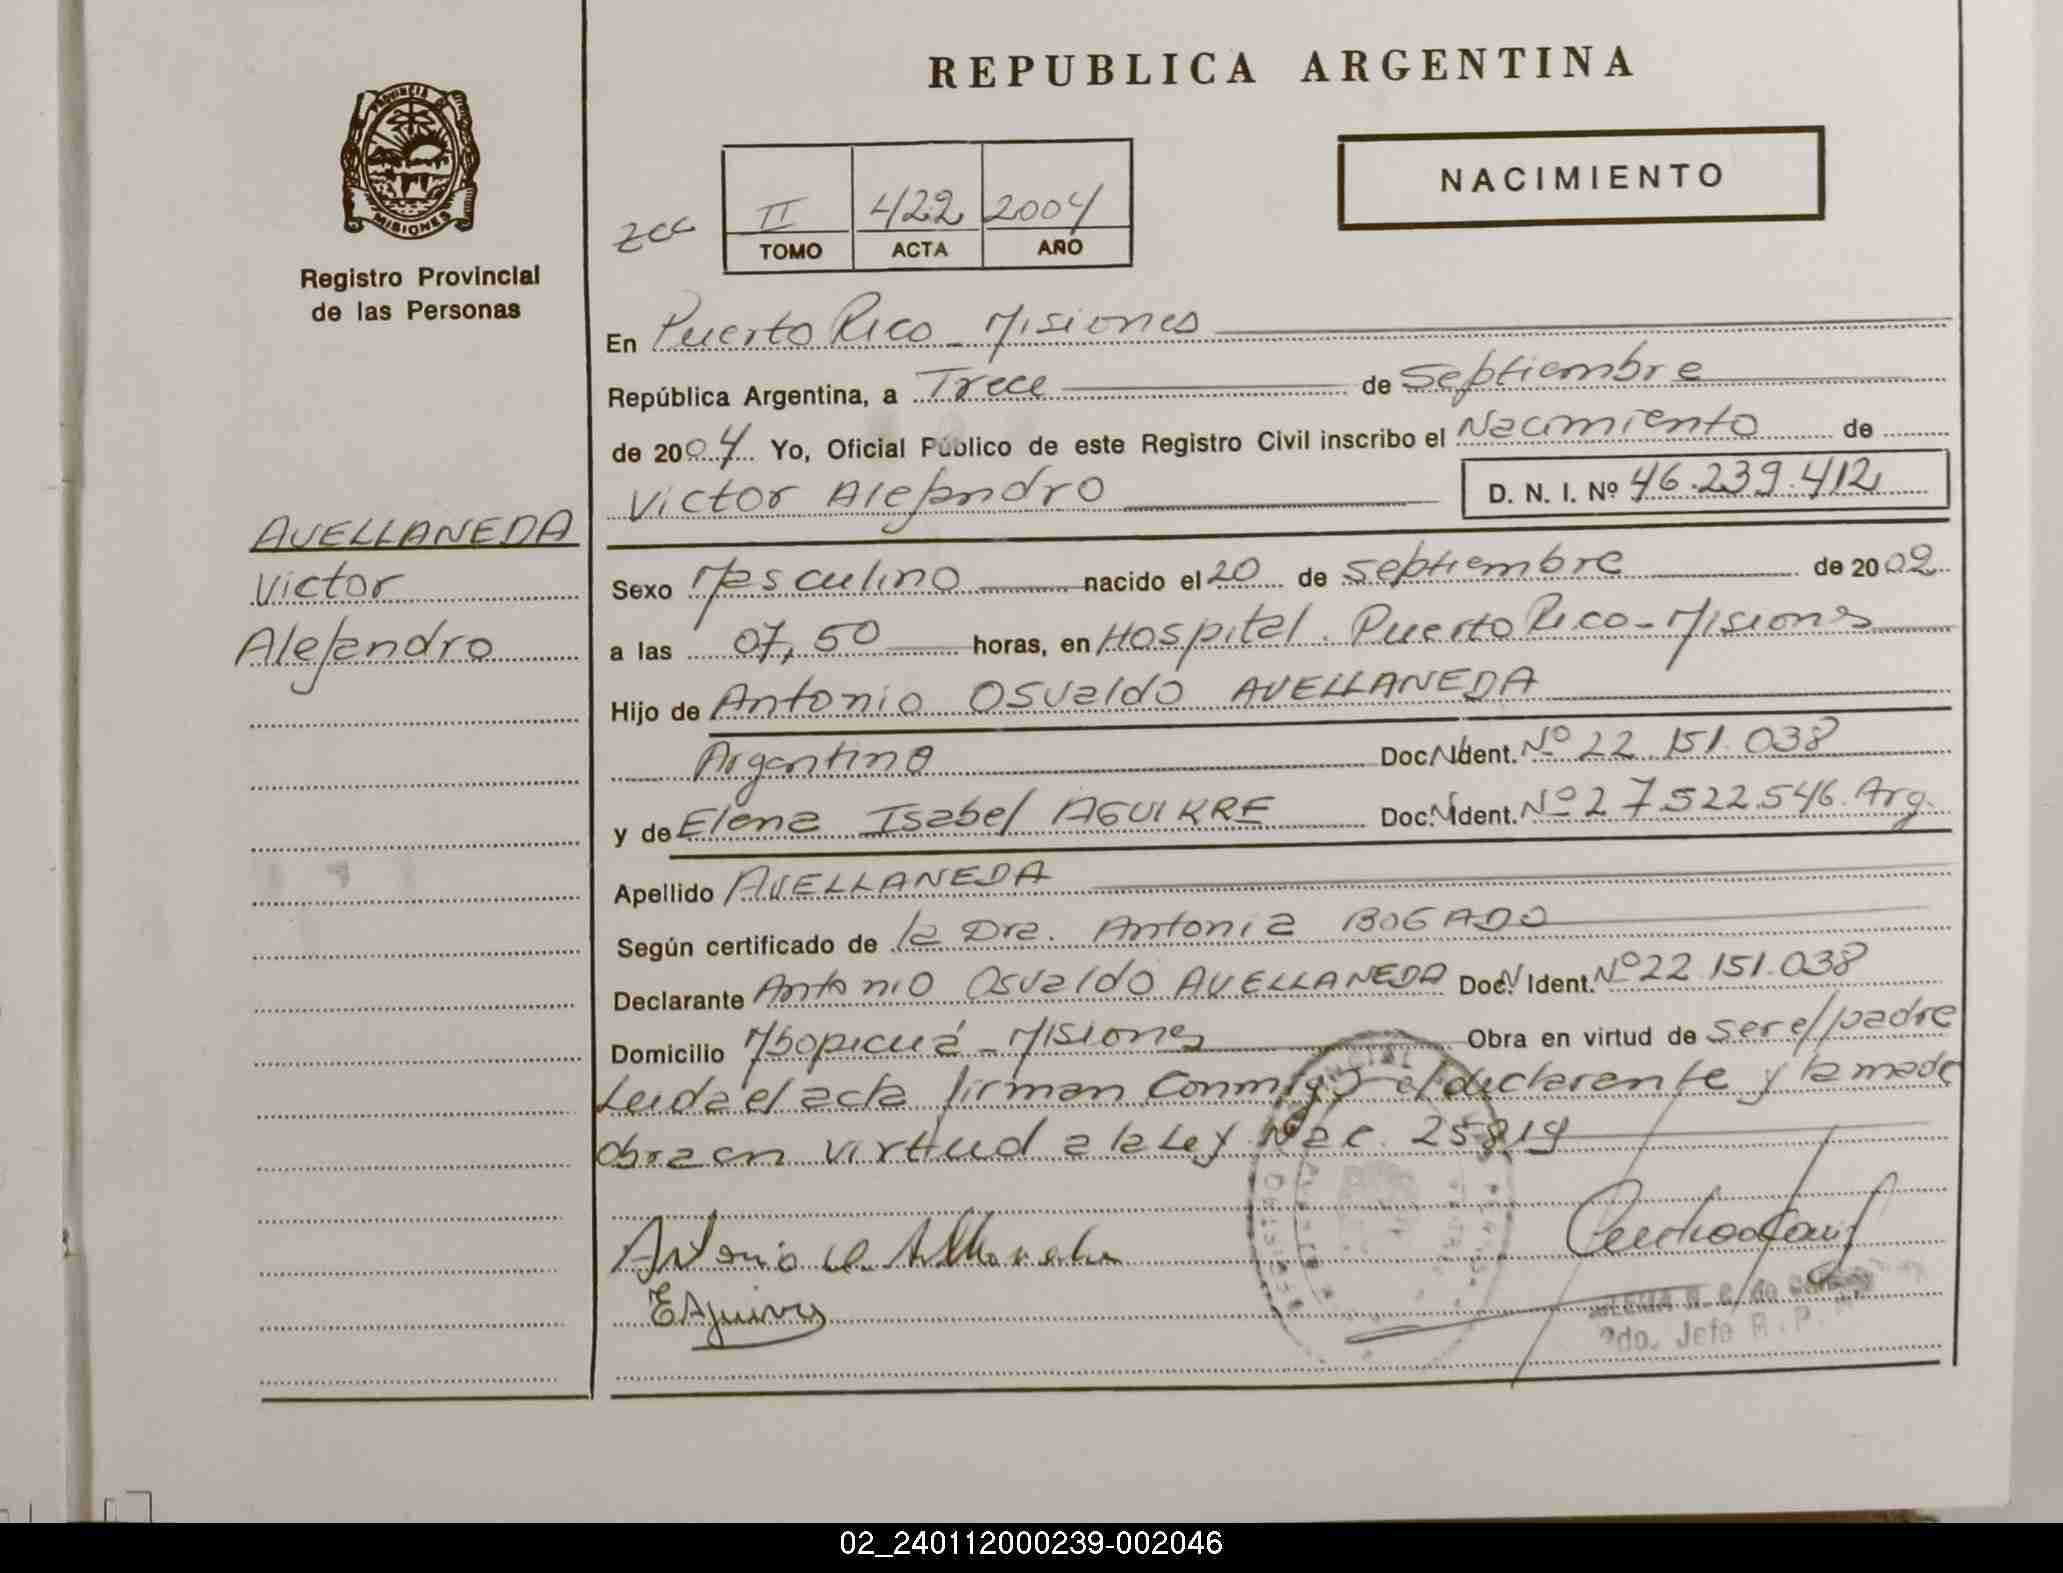 REPUBLICA ARGENTINA
PROVINCIA DE
MISIONES
Registro Provincial
de las Personas
NACIMIENTO
II 422 2004
TOMO ACTA AÑO
En Puerto Rico - Misiones
República Argentina, a Trece de Septiembre
de 2004 Yo, Oficial Público de este Registro Civil inscribo el Nacimiento de
Victor Alejandro D. N. I. Nº 46.239.412
AVELLANEDA
Victor
Alejandro
Sexo Masculino nacido el 20 de septiembre de 2002
a las 07,50 horas, en Hospital. Puerto Rico - Misiones
Hijo de Antonio Osvaldo AVELLANEDA
Argentino Doc. Ident. Nº 22.151.038
y de Elena Isabel AGUIRRE Doc. Ident. Nº 27522546. Arg.
Apellido AVELLANEDA
Según certificado de la Dra. Antonia BOGADO
Declarante Antonio Osvaldo AVELLANEDA Doc. Ident. Nº 22.151.038
Domicilio Mbopicuá - Misiones Obra en virtud de ser el padre
Leida el acta firman conmigo el declarante y la madre
obra en virtud a la Ley Nac. 25819
2do. Jefe R. P.
02_240112000239-002046